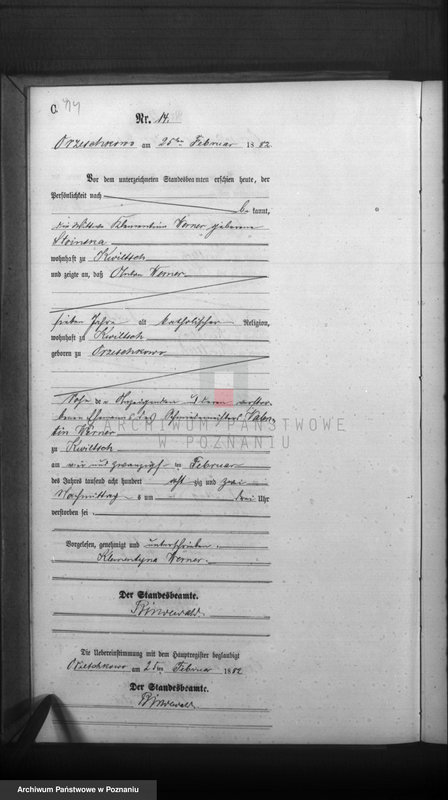 C.
Nr. 14.
Orzeschkowo am 25ten Februar 1882
Vor dem unterzeichneten Standesbeamten erschien heute, der
Persönlichkeit nach
be kannt,
die Wittwe Klementine Werner geborene
wohnhaft zu Kwiltsch
und zeigte an, daß Werner
sieben Jahre alt katholischer Religion,
wohnhaft zu Kwiltsch
geboren zu Orzeschkowo
Sohn der Anzeigenden und deren verstor-
benen Ehemannes des Schmiedemeisters Valen-
tin Werner
zu Kwiltsch
am vier und zwanzigsten Februar
des Jahres tausend acht hundert acht zig und zwei
Nachmittag s um drei Uhr
verstorben sei
Vorgelesen, genehmigt und unterschrieben.
Klementyna Werner.
Der Standesbeamte.
Die Uebereinstimmung mit dem Hauptregister beglaubigt
Orzeschkowo am 25ten Februar 1882
Der Standesbeamte.
ARCHIWUM PAŃSTWOWE
W POZNANIU
Archiwum Państwowe w Poznaniu